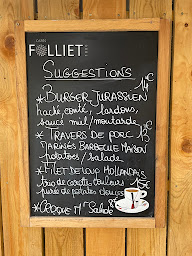 CAFÉS
FOLLIET
SUGGESTIONS
* BURGER JURASSIEN 14€
haché, comté, lardons,
sauce miel/moutarde
* TRAVERS DE PORC 13€
MARINÉS BARBECUE MAISON
potatoes/salade
* FILET DE LOUP HOLLANDAIS
trio de carotte couleurs 15€
purée de potates douces
* CROQUE M' Salade